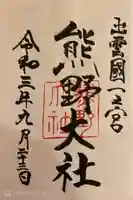 出雲國一之宮
熊野大社
令和三年九月二十三日